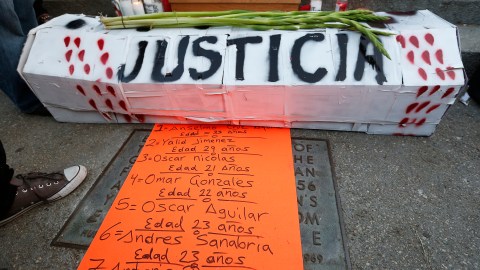 JUSTICIA
Edad = 23 años
2= Yalid Jimenez
Edad 29 años
3= Oscar nicolas
Edad 21 años
4= Omar Gonzales
Edad 22 años
5= Oscar Aguilar
Edad 23 años
6= Andres Sanabria
Edad = 23 años
7=
OF
THE
56
N'S
TO
969